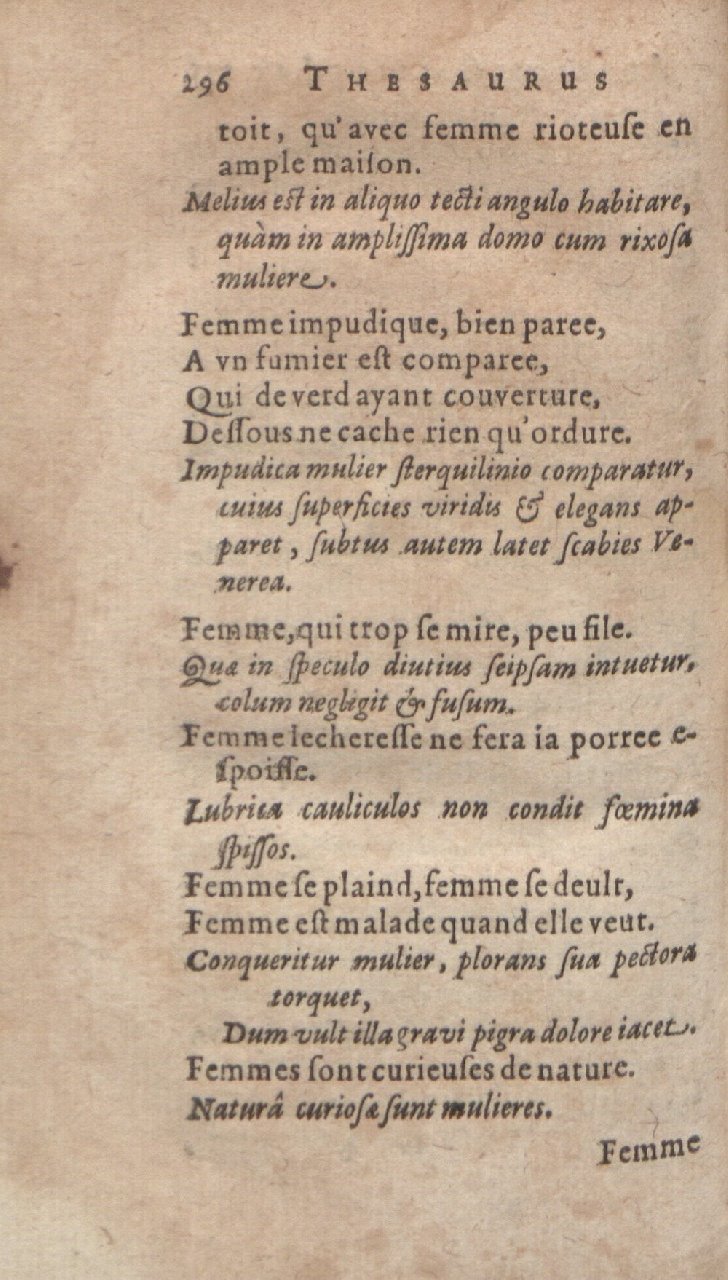 296 THESAURUS
toit, qu'avec femme rioteuſe en
ample maiſon.
Melius eſt in aliquo tecti angulo habitare,
quàm in ampliſſima domo cum rixoſa
muliere.
Femme impudique, bien paree,
A vn fumier eſt comparee,
Qui de verd ayant couverture,
Deſſous ne cache rien qu'ordure.
Impudica mulier ſterquilinio comparatur,
cuius ſuperficies viridis & elegans ap-
paret, ſubtus autem latet ſcabies Ve-
nerea.
Femme, qui trop ſe mire, peu file.
Quæ in ſpeculo diutius ſeipſam intuetur,
colum negligit & fuſum.
Femme lechereſſe ne fera ia porree e-
ſpoiſſe.
Lubrica cauliculos non condit fœmina
ſpiſſos.
Femme ſe plaind, femme ſe deult,
Femme eſt malade quand elle veut.
Conqueritur mulier, plorans ſua pectora
torquet,
Dum vult illa gravi pigra dolore iacet.
Femmes ſont curieuſes de nature.
Naturâ curioſæ ſunt mulieres.
Femme